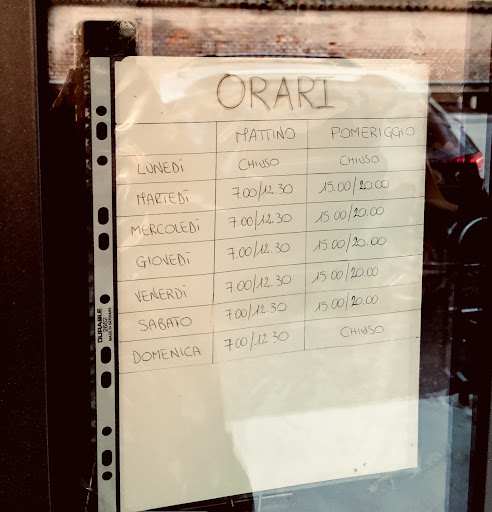 ORARI
MATTINO POMERIGGIO
LUNEDÌ CHIUSO CHIUSO
MARTEDÌ 7.00/12.30 15.00/20.00
MERCOLEDÌ 7.00/12.30 15.00/20.00
GIOVEDÌ 7.00/12.30 15.00/20.00
VENERDÌ 7.00/12.30 15.00/20.00
SABATO 7.00/12.30 15.00/20.00
DOMENICA 7.00/12.30 CHIUSO
DURABLE
2662
MADE IN GERMANY